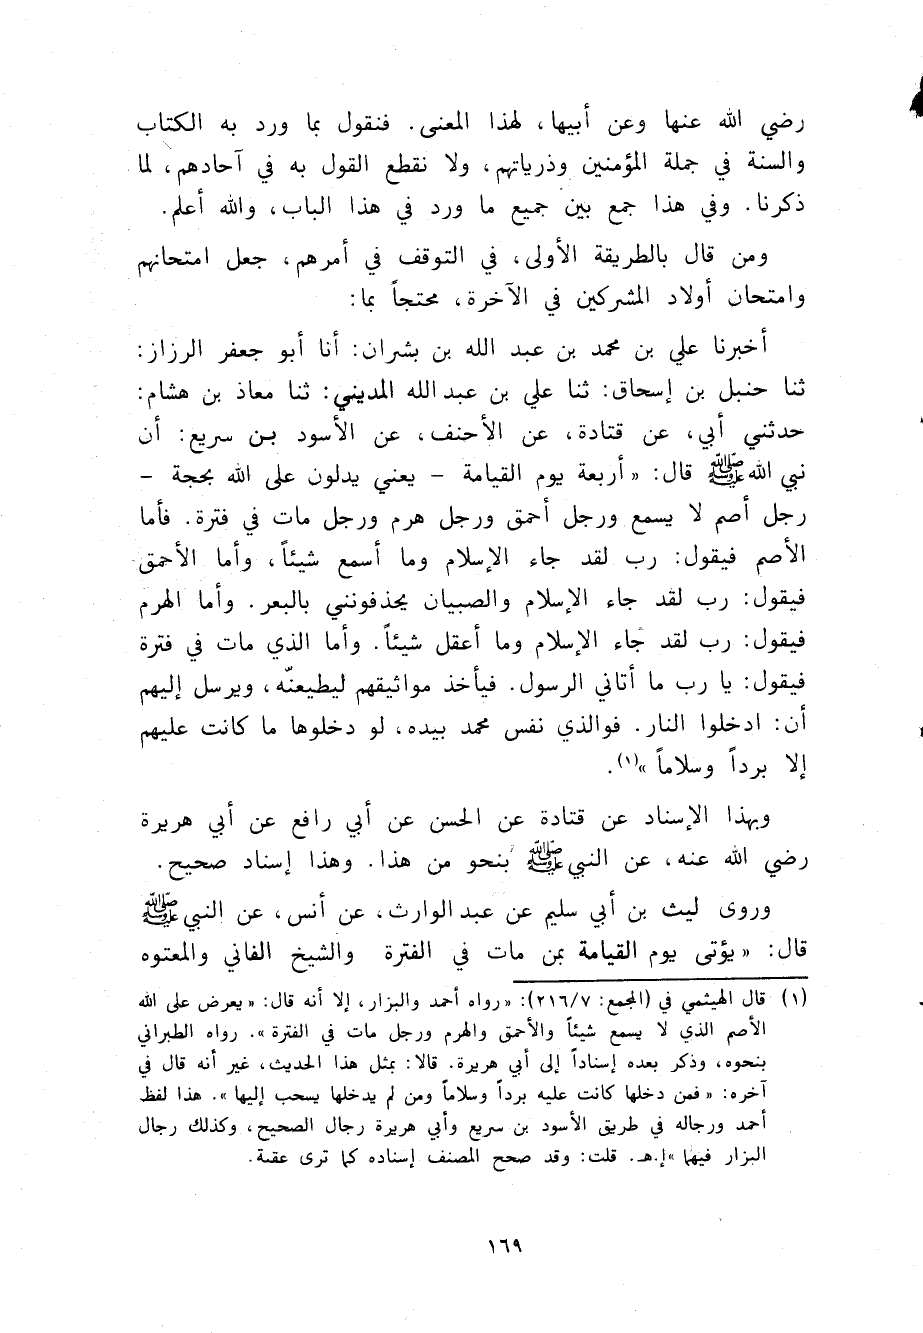 رضي الله عنها وعن أبيها، لهذا المعنى. فنقول بما ورد به الكتاب
والسنة في جملة المؤمنين وذرياتهم، ولا نقطع القول به في آحادهم، لما
ذكرنا. وفي هذا جمع بين جميع ما ورد في هذا الباب، والله أعلم.
ومن قال بالطريقة الأولى، في التوقف في أمرهم، جعل امتحانهم
وامتحان أولاد المشركين في الآخرة، محتجاً بما:
أخبرنا علي بن محمد بن عبد الله بن بشران: أنا أبو جعفر الرزاز:
ثنا حنبل بن إسحاق: ثنا علي بن عبدالله المديني: ثنا معاذ بن هشام:
حدثني أبي، عن قتادة، عن الأحنف، عن الأسود بن سريع: أن
نبي الله ﷺ قال: « أربعة يوم القيامة – يعني يدلون على الله بحجة –
رجل أصم لا يسمع ورجل أحمق ورجل هرم ورجل مات في فترة. فأما
الأصم فيقول: رب لقد جاء الإسلام وما أسمع شيئاً، وأما الأحمق
فيقول: رب لقد جاء الإسلام والصبيان يحذفونني بالبعر. وأما الهرم
فيقول: رب لقد جاء الإسلام وما أعقل شيئاً. وأما الذي مات في فترة
فيقول: يا رب ما أتاني الرسول. فيأخذ مواثيقهم ليطيعنّه، ويرسل إليهم
أن: ادخلوا النار. فوالذي نفس محمد بيده، لو دخلوها ما كانت عليهم
إلا برداً وسلاماً »(١).
وبهذا الإسناد عن قتادة عن الحسن عن أبي رافع عن أبي هريرة
رضي الله عنه، عن النبي ﷺ بنحو من هذا. وهذا إسناد صحيح.
وروى ليث بن أبي سليم عن عبد الوارث، عن أنس، عن النبي ﷺ
قال: « يؤتى يوم القيامة بمن مات في الفترة والشيخ الفاني والمعتوه
(١) قال الهيثمي في (المجمع: ٢١٦/٧): « رواه أحمد والبزار، إلا أنه قال: « يعرض على الله
الأصم الذي لا يسمع شيئاً والأحمق والهرم ورجل مات في الفترة ». رواه الطبراني
بنحوه، وذكر بعده إسناداً إلى أبي هريرة. قالا: بمثل هذا الحديث، غير أنه قال في
آخره: « فمن دخلها كانت عليه برداً وسلاماً ومن لم يدخلها يسحب إليها ». هذا لفظ
أحمد ورجاله في طريق الأسود بن سريع وأبي هريرة رجال الصحيح، وكذلك رجال
البزار فيهما »إ.هـ. قلت: وقد صحح المصنف إسناده كما ترى عقبه.
١٦٩